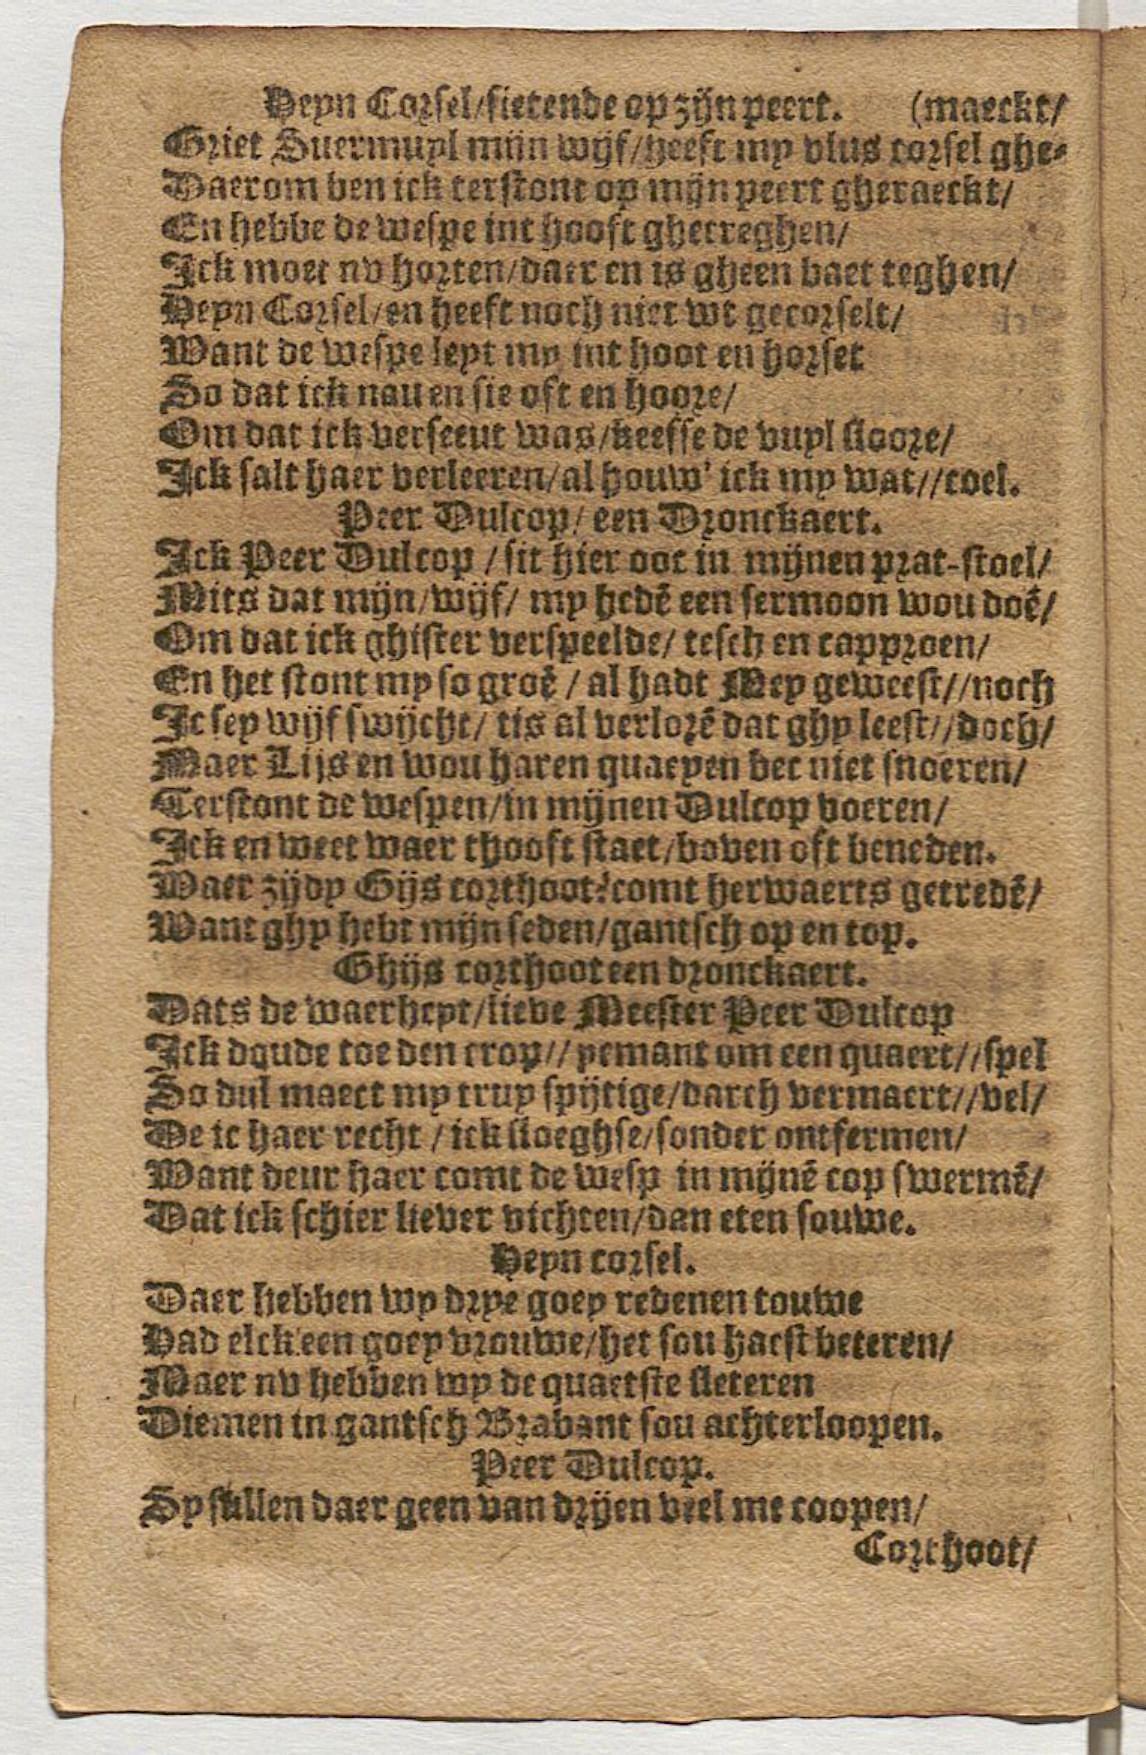 Heyn Corsel/sietende op zijn peert. (maeckt/
Griet Suermuyl mijn wijf/heeft my vlus corsel ghe-
Daerom ben ick terstont op mijn peert gheraeckt/
En hebbe de wespe int hooft ghecreghen/
Ick moet nv horten/daer en is gheen baet teghen/
Heyn Corsel/en heeft noch niet wt gecorselt/
Want de wespe leyt my int hoot en horset
So dat ick nau en sie oft en hoore/
Om dat ick verseeut was/keeffe de vuyl sloore/
Ick salt haer verleeren/al houw' ick my wat//coel.
Peer Dulcop/ een Dronckaert.
Ick Peer Dulcop /sit hier ooc in mijnen prat-stoel/
Mits dat mijn/wijf/ my hedē een sermoon wou doē/
Om dat ick ghister verspeelde/ tesch en capproen/
En het stont my so groē / al hadt Mey geweest//noch
Ic sey wijf swijcht/ tis al verlorē dat ghy leest//doch/
Maer Lijs en wou haren quaeyen bec niet snoeren/
Terstont de wespen/in mijnen Dulcop voeren/
Ick en weet waer thooft staet/boven oft beneden.
Waer zijdy Gijs corthoot?comt herwaerts getredē/
Want ghy hebt mijn seden/gantsch op en top.
Ghijs corthoot een dronckaert.
Dats de waerheyt/lieve Meester Peer Dulcop
Ick doude toe den crop// yemant om een quaert//spel
So dul maect my truy spijtige/darch vermaert//vel/
De ic haer recht /ick sloeghse/sonder ontfermen/
Want deur haer comt de wesp in mijnē cop swermē/
Dat ick schier liever vichten/dan eten souwe.
Heyn corsel.
Daer hebben wy drye goey redenen touwe
Had elck een goey vrouwe/het sou haest beteren/
Maer nv hebben wy de quaetste sleteren
Diemen in gantsch Brabant sou achterloopen.
Peer Dulcop.
Sy sullen daer geen van drijen veel me coopen/
Corthoot/